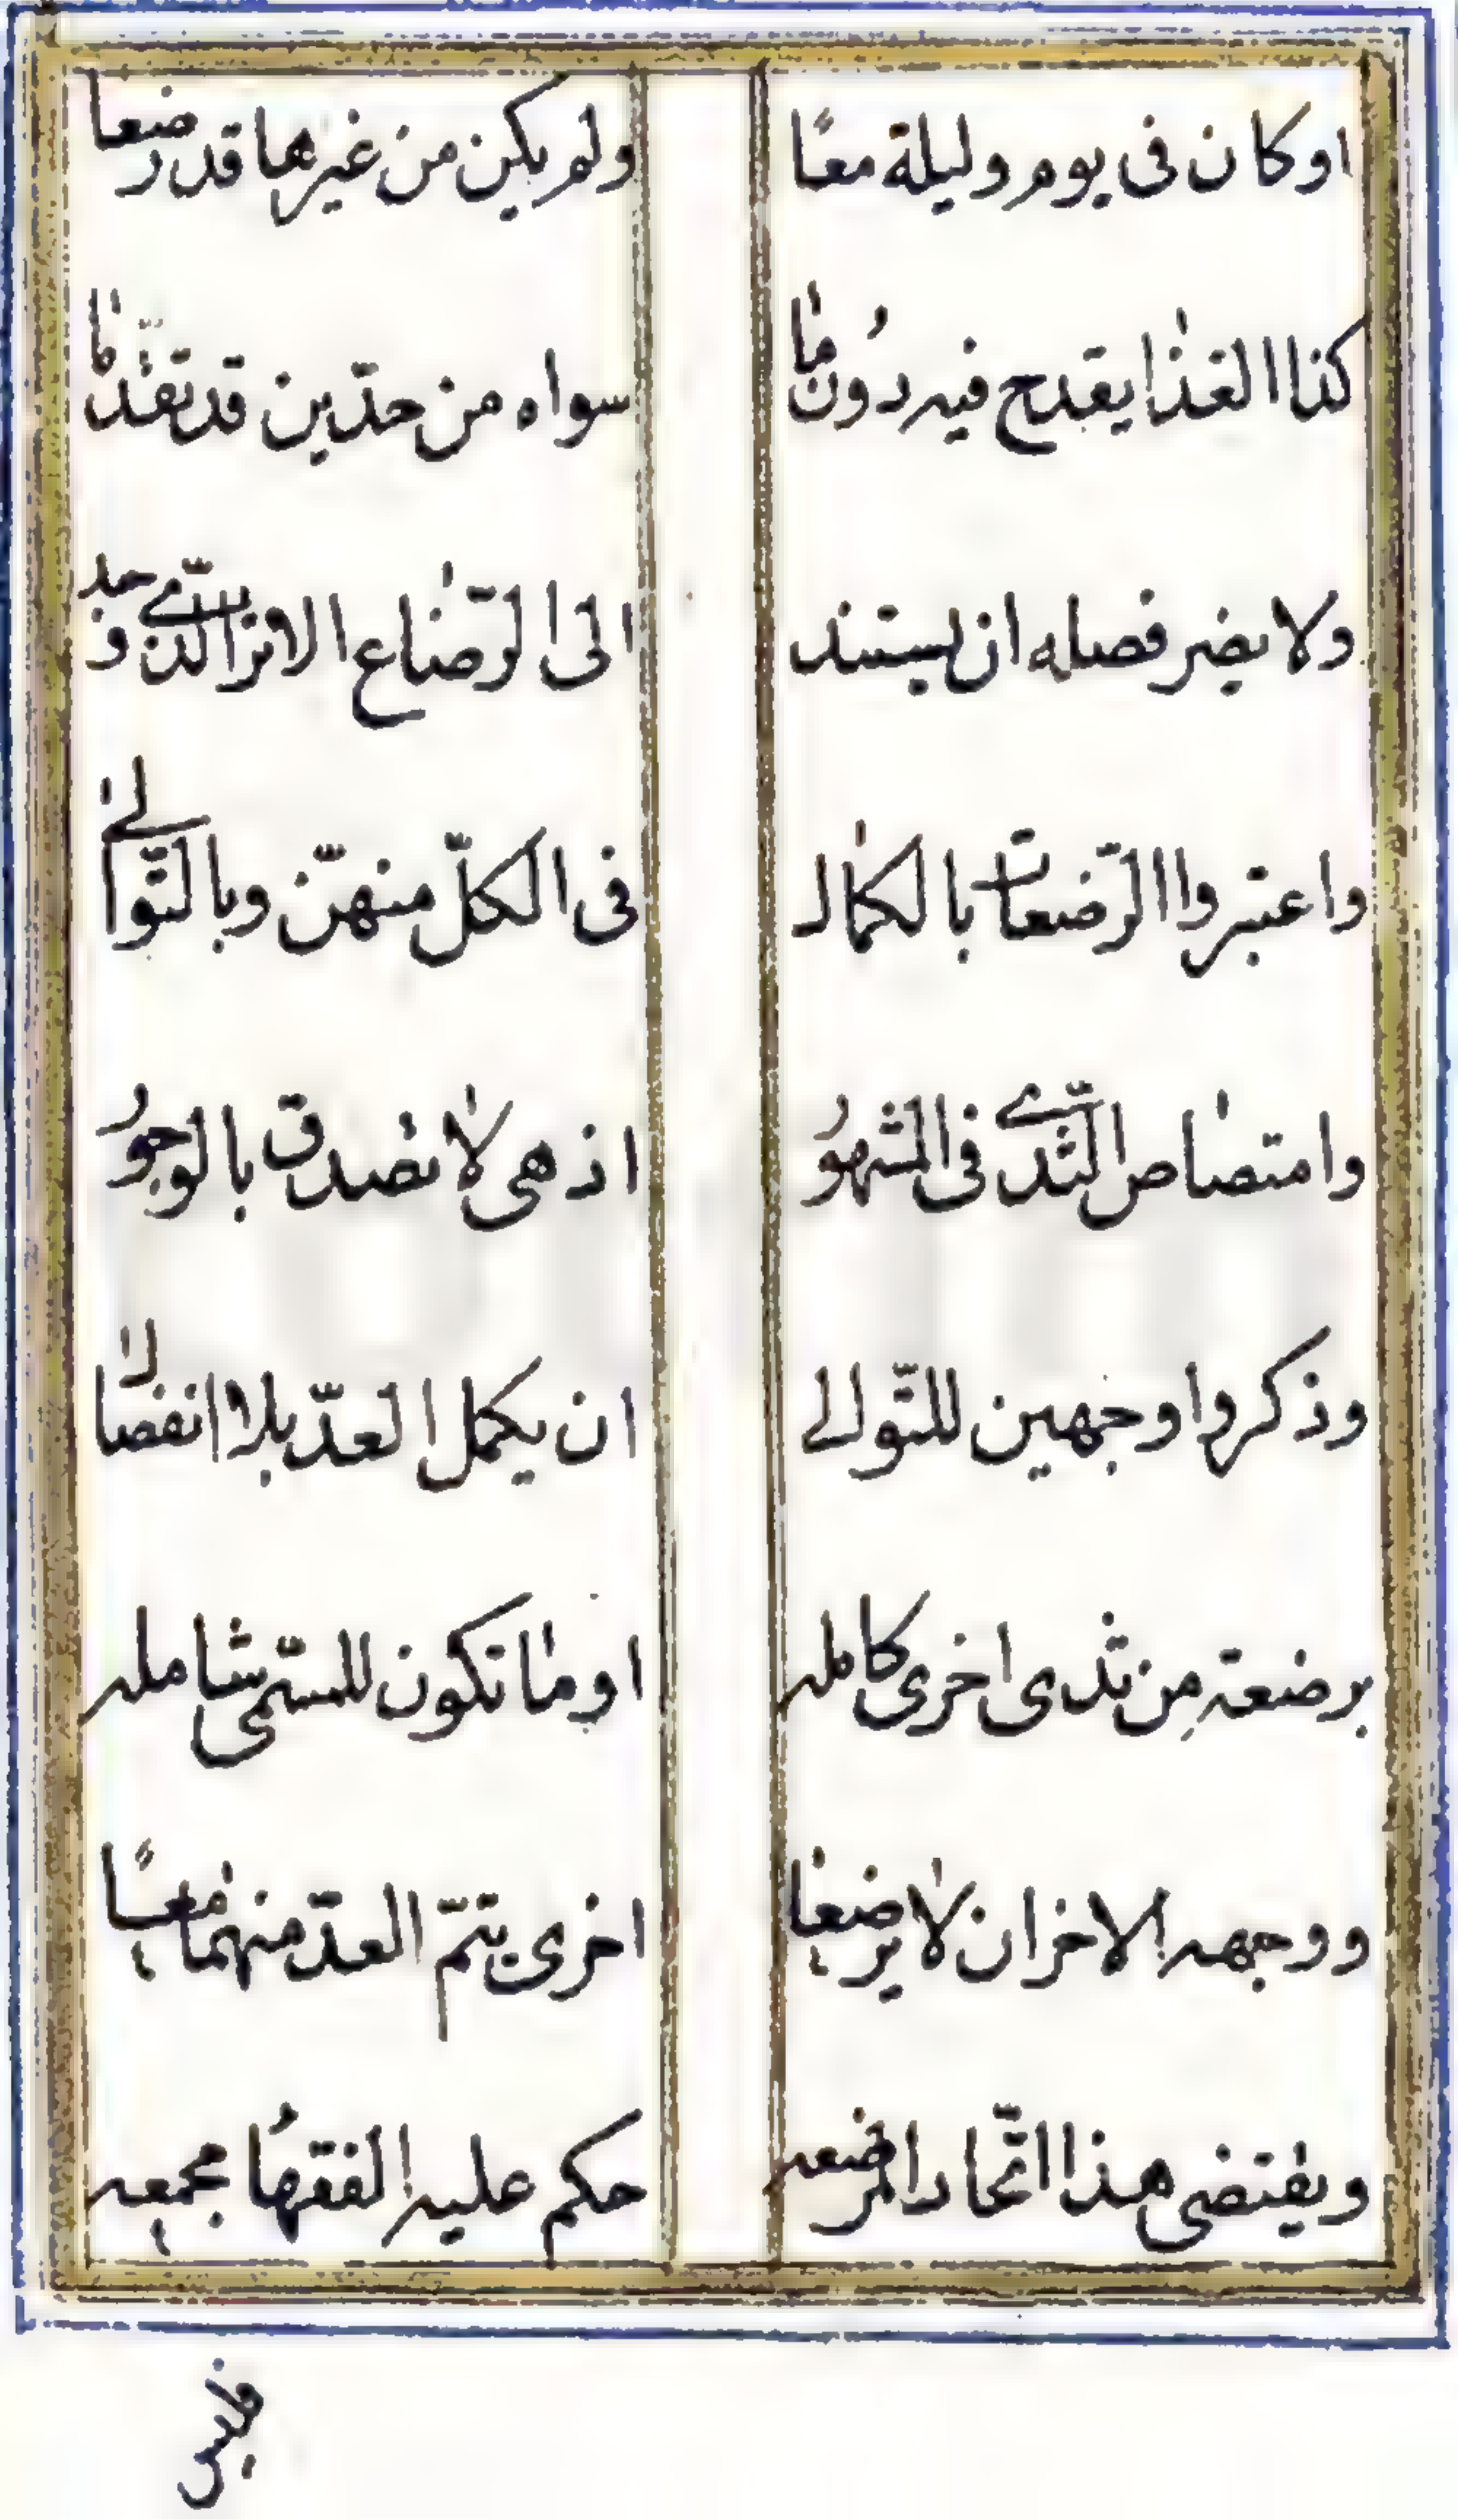 او كان فى يوم وليلة معًا
ولم يكن من غيرها قد رضعا
كذا الغذا يقدح فيه دون ما
سواه من حدّين قد تقدّما
ولا يضر فصله ان يستند
الى الرّضاع الانزالذى وجد
واعتبروا الرّضعات بالكمال
فى الكلّ منهنّ وبالتّوالى
وامتصاص الثّدى فى المشهور
اذ هى لا تصدق بالوجور
وذكروا وجهين للتّوالى
ان يكمل العدّ بلا انفصال
برضعة مِن ثدى اخرى كامله
او ما تكون للمسمّى شامله
ووجهه الاخر ان لا يرضعا
اخرى يتمّ العدّ منهما معًا
ويقتضى هذا اتّحاد المرضعه
حكم عليه الفقهاُ مجمعه
فليس